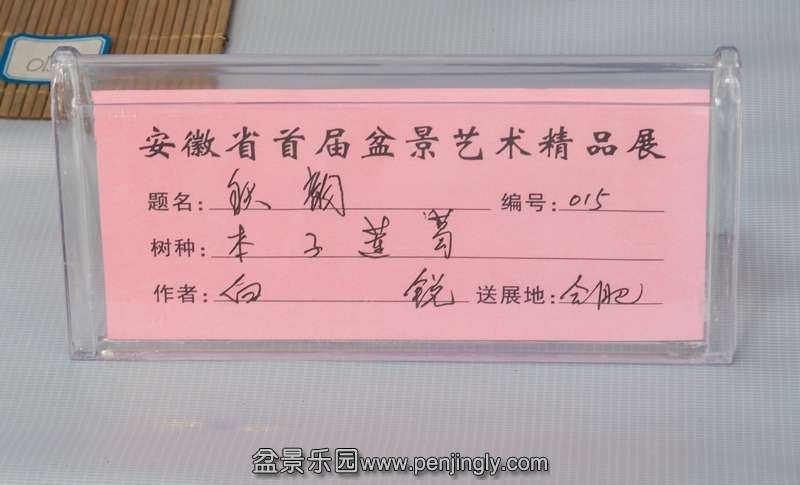 安徽省首届盆景艺术精品展
题名: 铁韵 编号: 015
树种: 本子莲蒿
作者: 白 锐 送展地: 合肥
盆景乐园www.penjingly.com